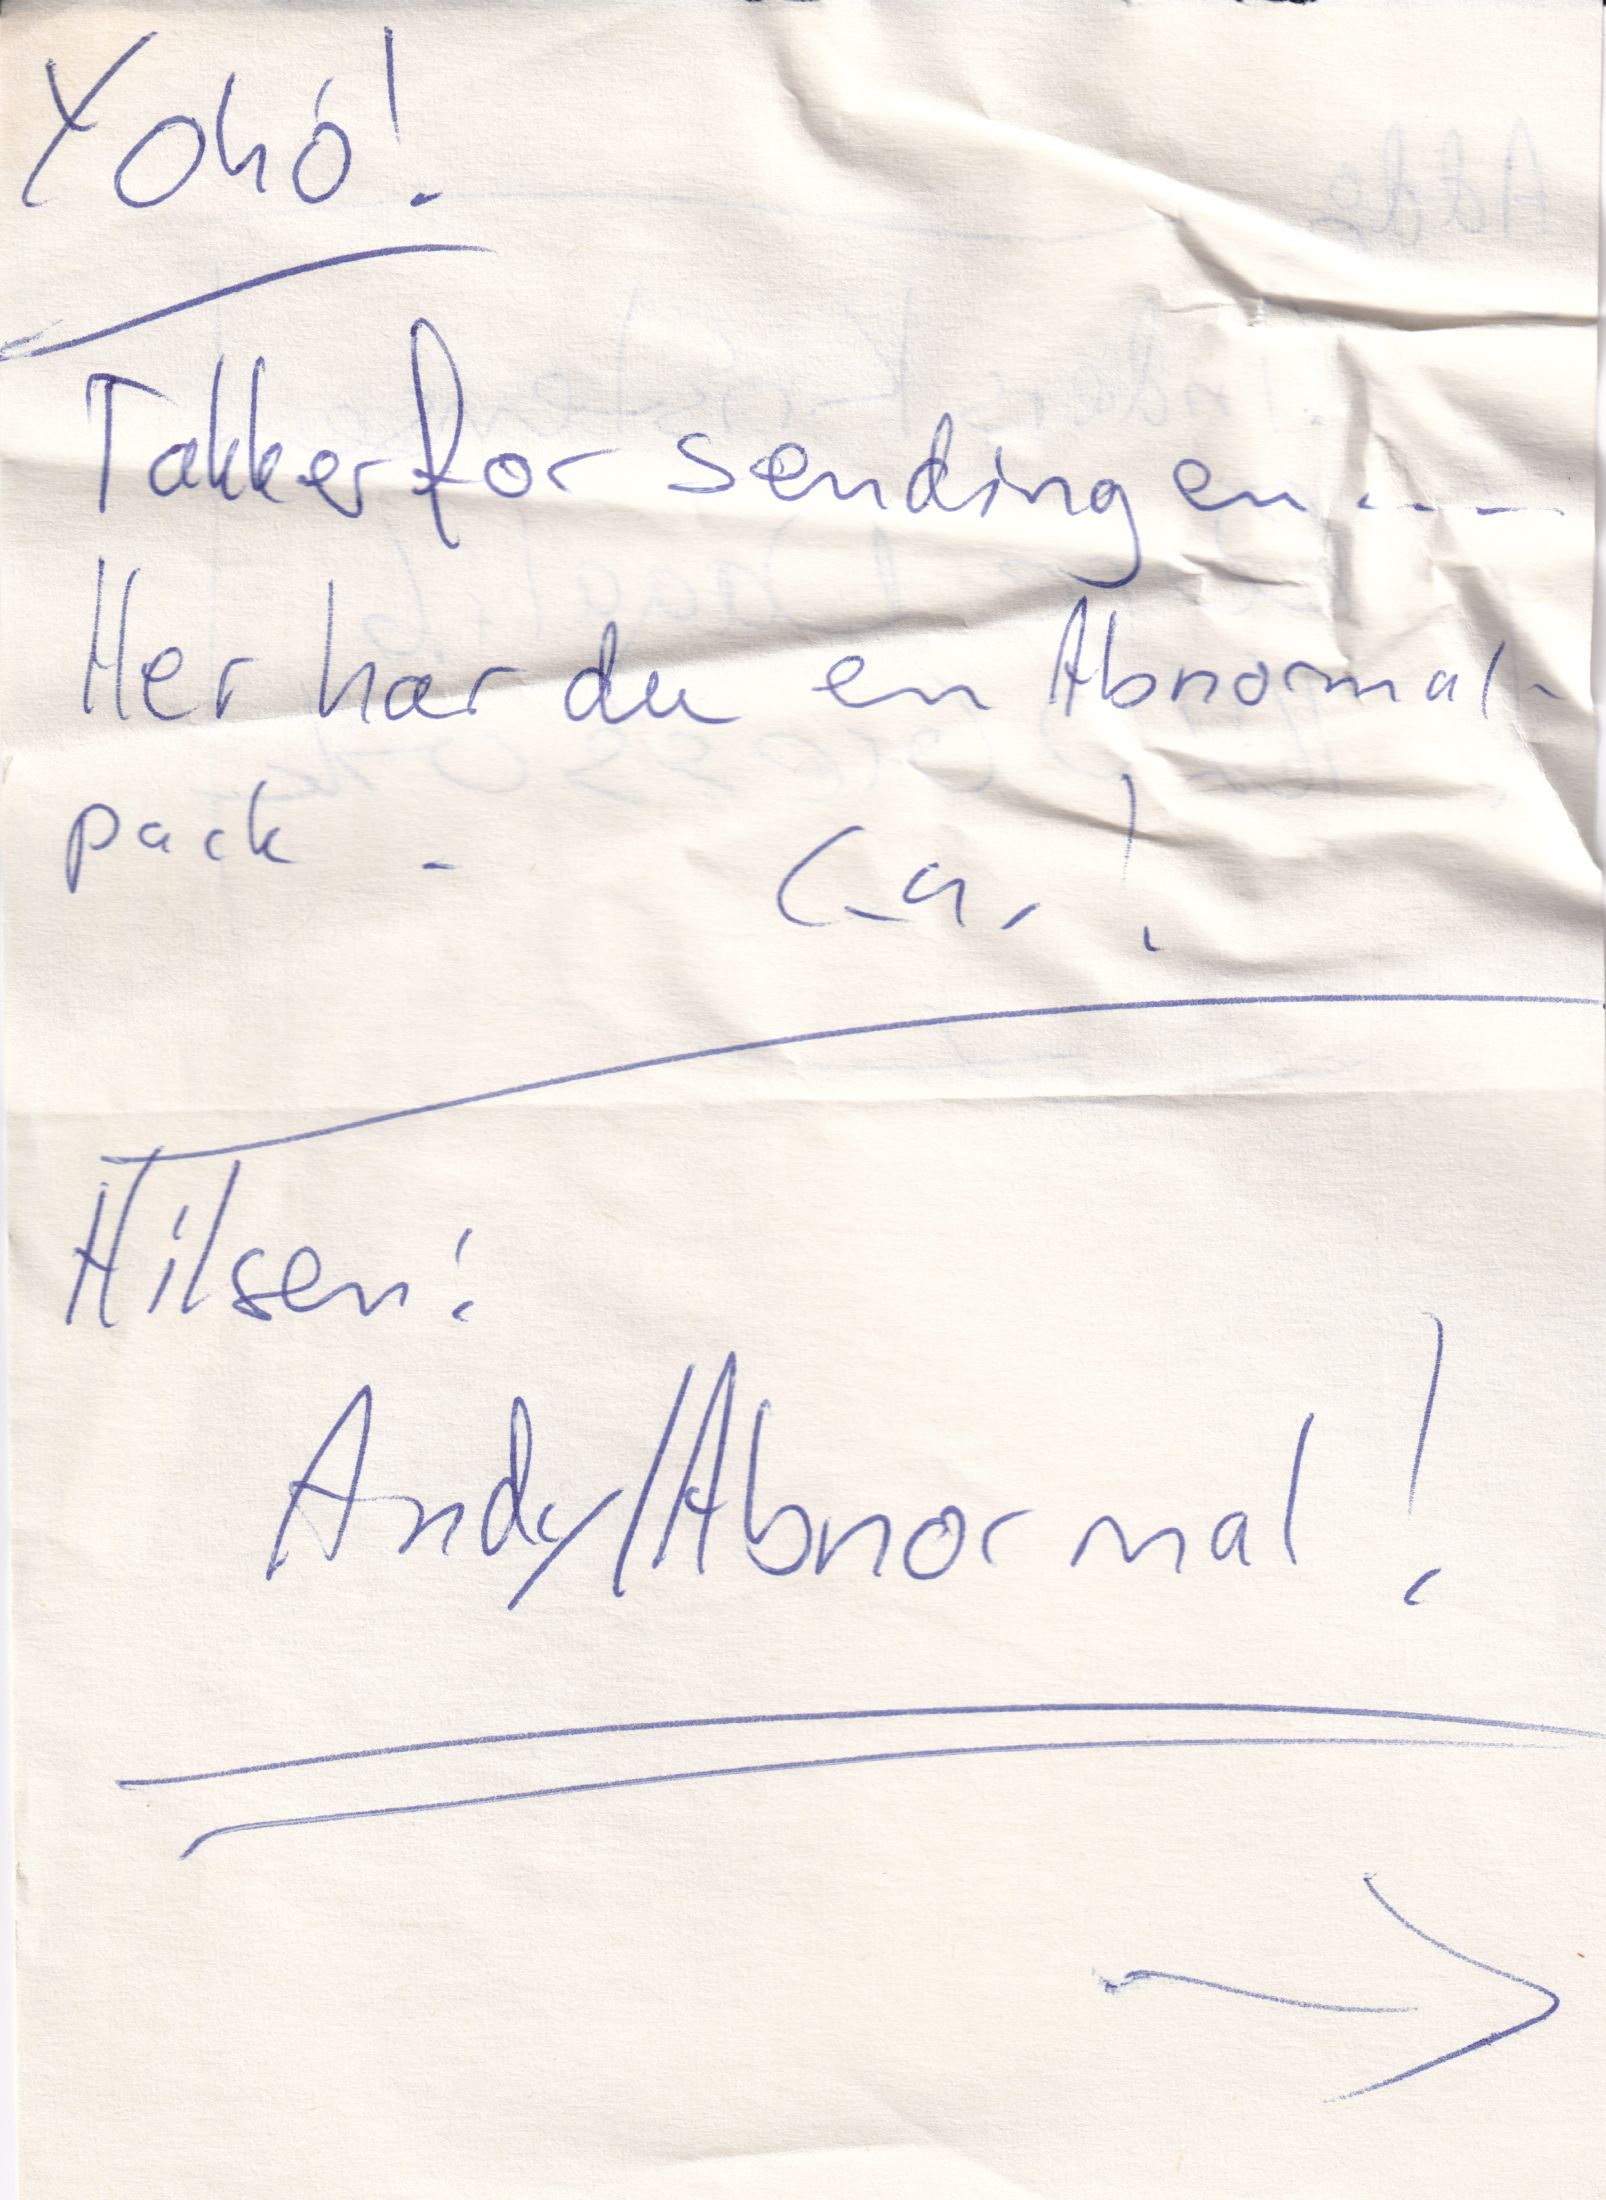 Yohó!
Takker for sendingen....
Her har du en Abnormal-
pack. C-a.!
Hilsen:
Andy/Abnormal!